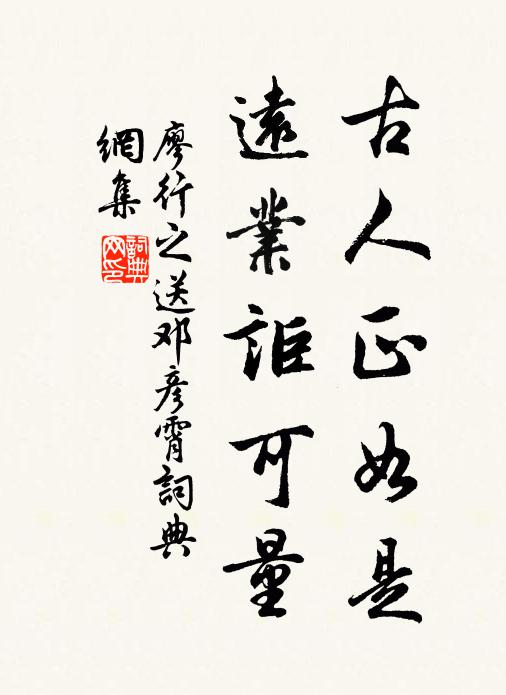 古人正如是
遠業詎可量
廖行之送邓彦霄詞典
網集
詞典
网印